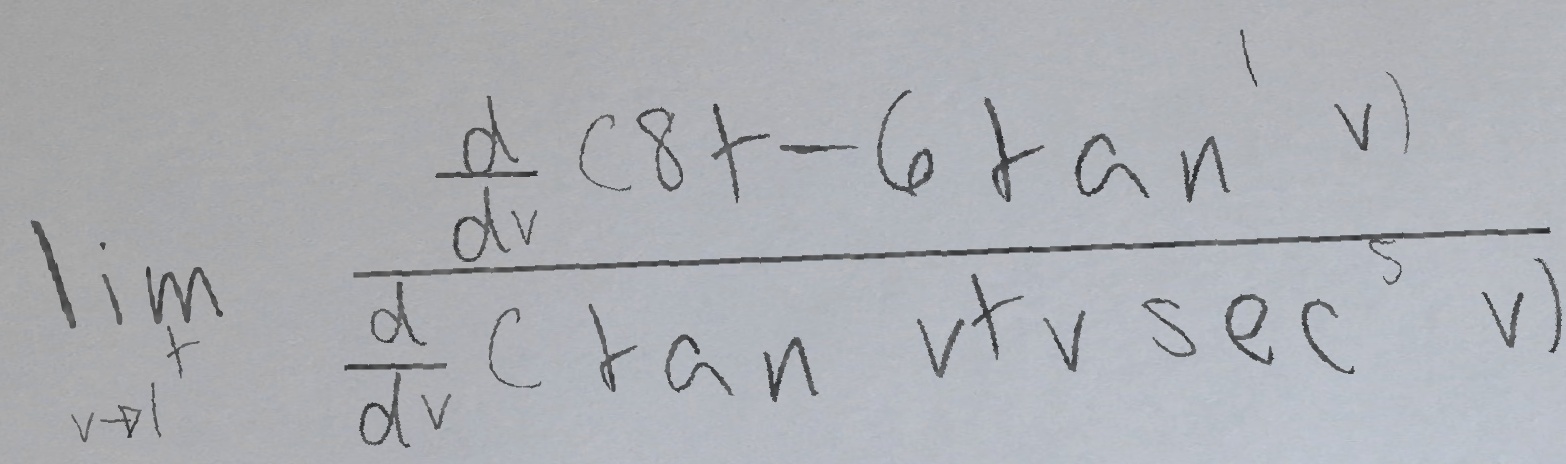 lim v→1⁺ \frac{\frac{d}{dv}(8t-6tan^1 v)}{\frac{d}{dv}(tan v+v sec^5 v)}